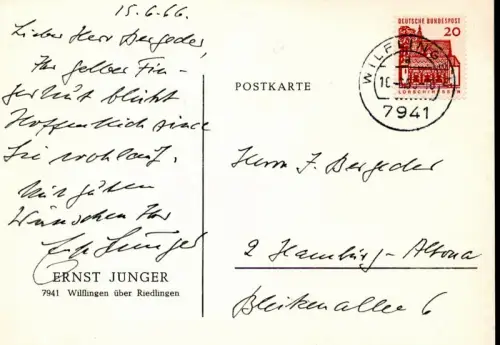 15.6.66.
Lieber Herr Bergeder,
Ihr gelber Fin-
gerhut blüht
Hoffentlich sind
Sie wohlauf.
Mit guten
Wünschen Ihr
Ernst Jünger
ERNST JÜNGER
7941 Wilflingen über Riedlingen
POSTKARTE
DEUTSCHE BUNDESPOST
20
WILFLINGEN
7941
Herrn F. Bergeder
2 Hamburg-Altona
Bleickenallee 6